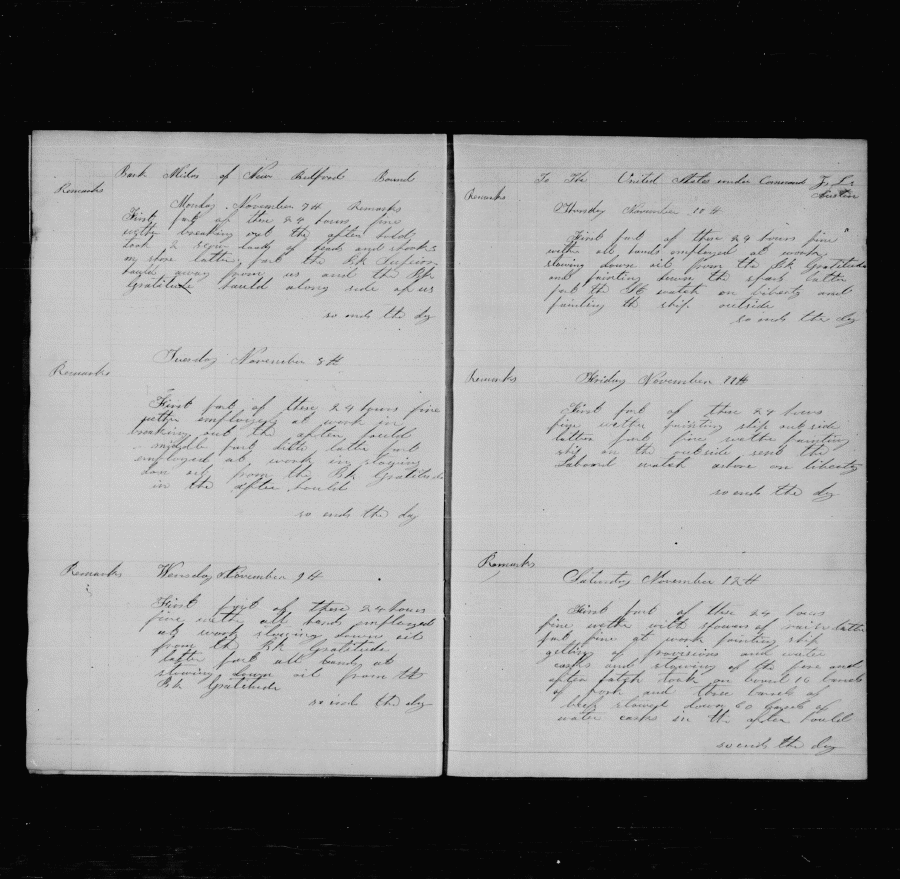 Bark Midas of New Bedford Bound
Remarks
Monday November 7th Remarks
First part of these 24 hours fine
wether breaking out the after hould
took 2 loads of heads and shooks
on shore latter part the Bk
hauld away from us and the Bk
Gratitude hauld along side of us
so ends the day
Tuesday November 8th
Remarks
First part of these 24 hours fine
wether employed at work in
breaking out the after hould
middle part ditto latter part
employed at work in stowing
down oil from the Bk Gratitude
in the after hould
so ends the day
Remarks Wensday November 9th
First part of these 24 hours
fine wether all hands employed
at work stowing down oil
from the Bk Gratitude
latter part all hands at
stowing down oil from the
Bk Gratitude
so ends the day
To The United States under Command
Austin
Remarks
Thursday November 10th
First part of these 24 hours fine
wether all hands employed at work
stowing down oil from the Bk Gratitude
and painting down the spars latter
part the watch on liberty and
painting the ship outside
so ends the day
Remarks Friday November 11th
First part of these 24 hours
fine wether painting ship outside
latter part fine wether painting
ship on the outside sent the
Laboard watch ashore on liberty
so ends the day
Remarks
Saturday November 12th
First part of these 24 hours
fine wether with showers of rain latter
part fine at work painting ship
getting of provisions and water
casks and stowing of the fore and
after hatch took on board 16 barels
of pork and three barels of
beef stowed down 60 barels of
water casks in the after hould
so ends the day